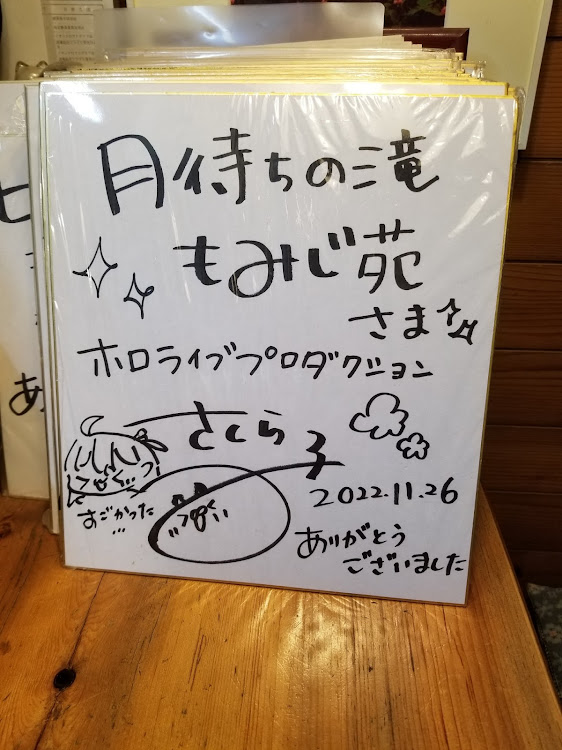 月待ちの滝
もみじ苑
さま
ホロライブプロダクション
さくら
すごかった
...
2022.11.26
ありがとう
ございました